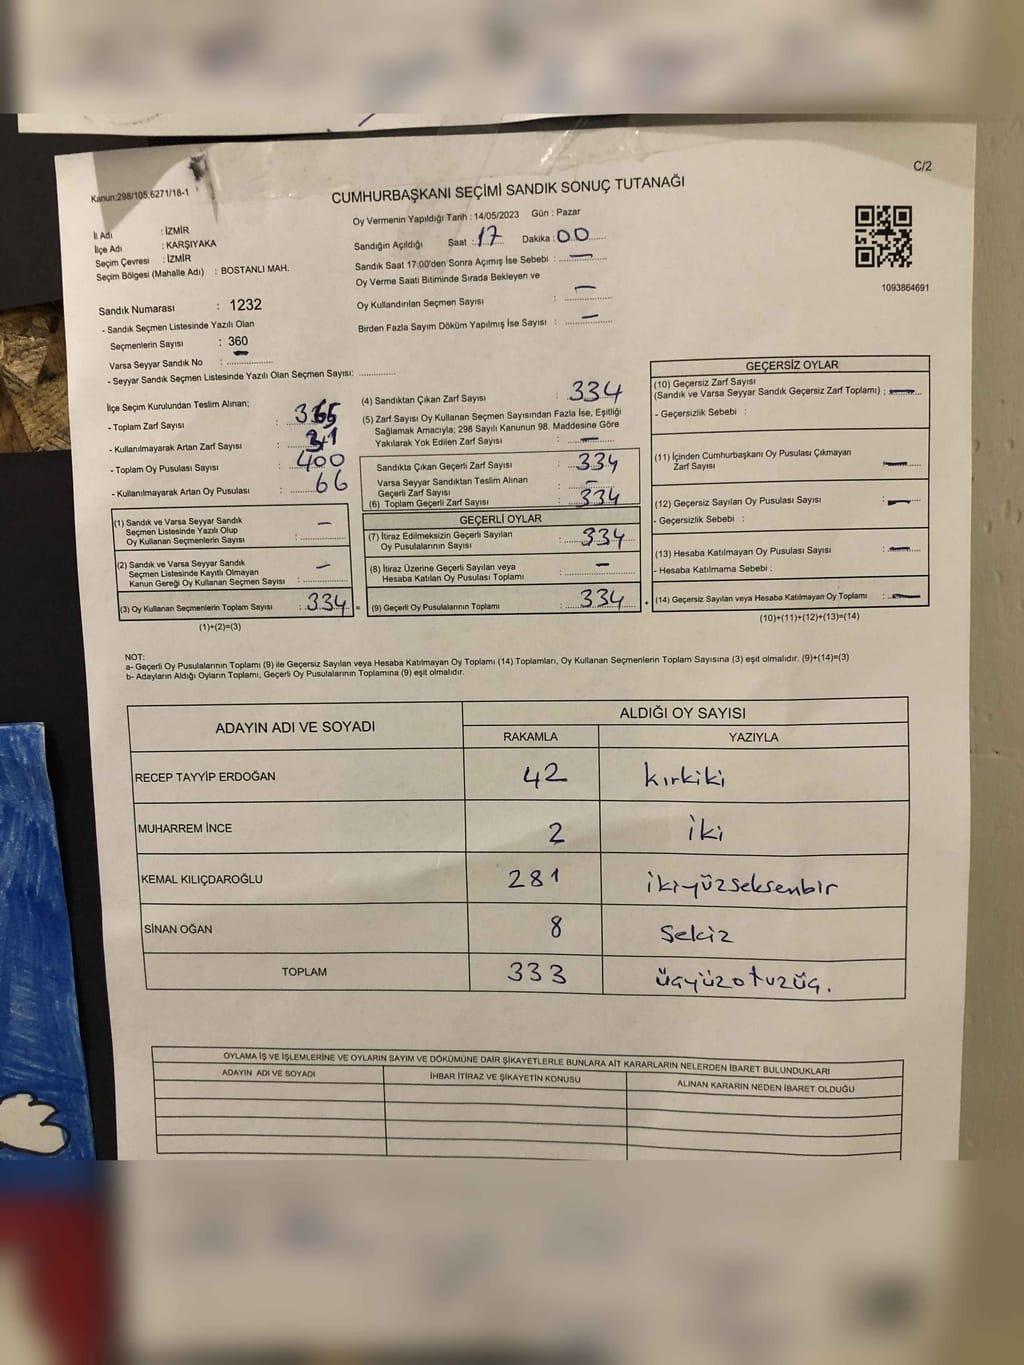 C/2
Kanun:298/105,6271/18-1
CUMHURBAŞKANI SEÇİMİ SANDIK SONUÇ TUTANAĞI
Oy Vermenin Yapıldığı Tarih : 14/05/2023 Gün : Pazar
İl Adı : İZMİR
İlçe Adı : KARŞIYAKA
Seçim Çevresi : İZMİR
Seçim Bölgesi (Mahalle Adı) : BOSTANLI MAH.
Sandığın Açıldığı Saat : 17 Dakika : 00
Sandık Saat 17:00'den Sonra Açımış İse Sebebi : —
Oy Verme Saati Bitiminde Sırada Bekleyen ve
Oy Kullandırılan Seçmen Sayısı : —
Birden Fazla Sayım Döküm Yapılmış İse Sayısı : —
1093864691
Sandık Numarası : 1232
- Sandık Seçmen Listesinde Yazılı Olan
Seçmenlerin Sayısı : 360
Varsa Seyyar Sandık No : —
- Seyyar Sandık Seçmen Listesinde Yazılı Olan Seçmen Sayısı:
İlçe Seçim Kurulundan Teslim Alınan;
- Toplam Zarf Sayısı : 365
- Kullanılmayarak Artan Zarf Sayısı : 31
- Toplam Oy Pusulası Sayısı : 400
- Kullanılmayarak Artan Oy Pusulası : 66
(1) Sandık ve Varsa Seyyar Sandık
Seçmen Listesinde Yazılı Olup
Oy Kullanan Seçmenlerin Sayısı : —
(2) Sandık ve Varsa Seyyar Sandık
Seçmen Listesinde Kayıtlı Olmayan
Kanun Gereği Oy Kullanan Seçmen Sayısı : —
(3) Oy Kullanan Seçmenlerin Toplam Sayısı : 334 =
(1)+(2)=(3)
(4) Sandıktan Çıkan Zarf Sayısı : 334
(5) Zarf Sayısı Oy Kullanan Seçmen Sayısından Fazla İse, Eşitliği
Sağlamak Amacıyla; 298 Sayılı Kanunun 98. Maddesine Göre
Yakılarak Yok Edilen Zarf Sayısı : —
Sandıkta Çıkan Geçerli Zarf Sayısı : 334
Varsa Seyyar Sandıktan Teslim Alınan
Geçerli Zarf Sayısı : —
(6) Toplam Geçerli Zarf Sayısı : 334
GEÇERLİ OYLAR
(7) İtiraz Edilmeksizin Geçerli Sayılan
Oy Pusulalarının Sayısı : 334
(8) İtiraz Üzerine Geçerli Sayılan veya
Hesaba Katılan Oy Pusulası Toplamı : —
(9) Geçerli Oy Pusulalarının Toplamı : 334 +
GEÇERSİZ OYLAR
(10) Geçersiz Zarf Sayısı
(Sandık ve Varsa Seyyar Sandık Geçersiz Zarf Toplamı) : —
- Geçersizlik Sebebi :
(11) İçinden Cumhurbaşkanı Oy Pusulası Çıkmayan
Zarf Sayısı : —
(12) Geçersiz Sayılan Oy Pusulası Sayısı : —
- Geçersizlik Sebebi :
(13) Hesaba Katılmayan Oy Pusulası Sayısı : —
- Hesaba Katılmama Sebebi :
(14) Geçersiz Sayılan veya Hesaba Katılmayan Oy Toplamı : —
(10)+(11)+(12)+(13)=(14)
NOT:
a- Geçerli Oy Pusulalarının Toplamı (9) ile Geçersiz Sayılan veya Hesaba Katılmayan Oy Toplamı (14) Toplamları, Oy Kullanan Seçmenlerin Toplam Sayısına (3) eşit olmalıdır. (9)+(14)=(3)
b- Adayların Aldığı Oyların Toplamı, Geçerli Oy Pusulalarının Toplamına (9) eşit olmalıdır.
ADAYIN ADI VE SOYADI ALDIĞI OY SAYISI
RAKAMLA YAZIYLA
RECEP TAYYİP ERDOĞAN 42 kırkiki
MUHARREM İNCE 2 iki
KEMAL KILIÇDAROĞLU 281 ikiyüzseksenbir
SİNAN OĞAN 8 sekiz
TOPLAM 333 üçyüzotuzüç.
OYLAMA İŞ VE İŞLEMLERİNE VE OYLARIN SAYIM VE DÖKÜMÜNE DAİR ŞİKAYETLERLE BUNLARA AİT KARARLARIN NELERDEN İBARET BULUNDUKLARI
ADAYIN ADI VE SOYADI İHBAR İTİRAZ VE ŞİKAYETİN KONUSU ALINAN KARARIN NEDEN İBARET OLDUĞU